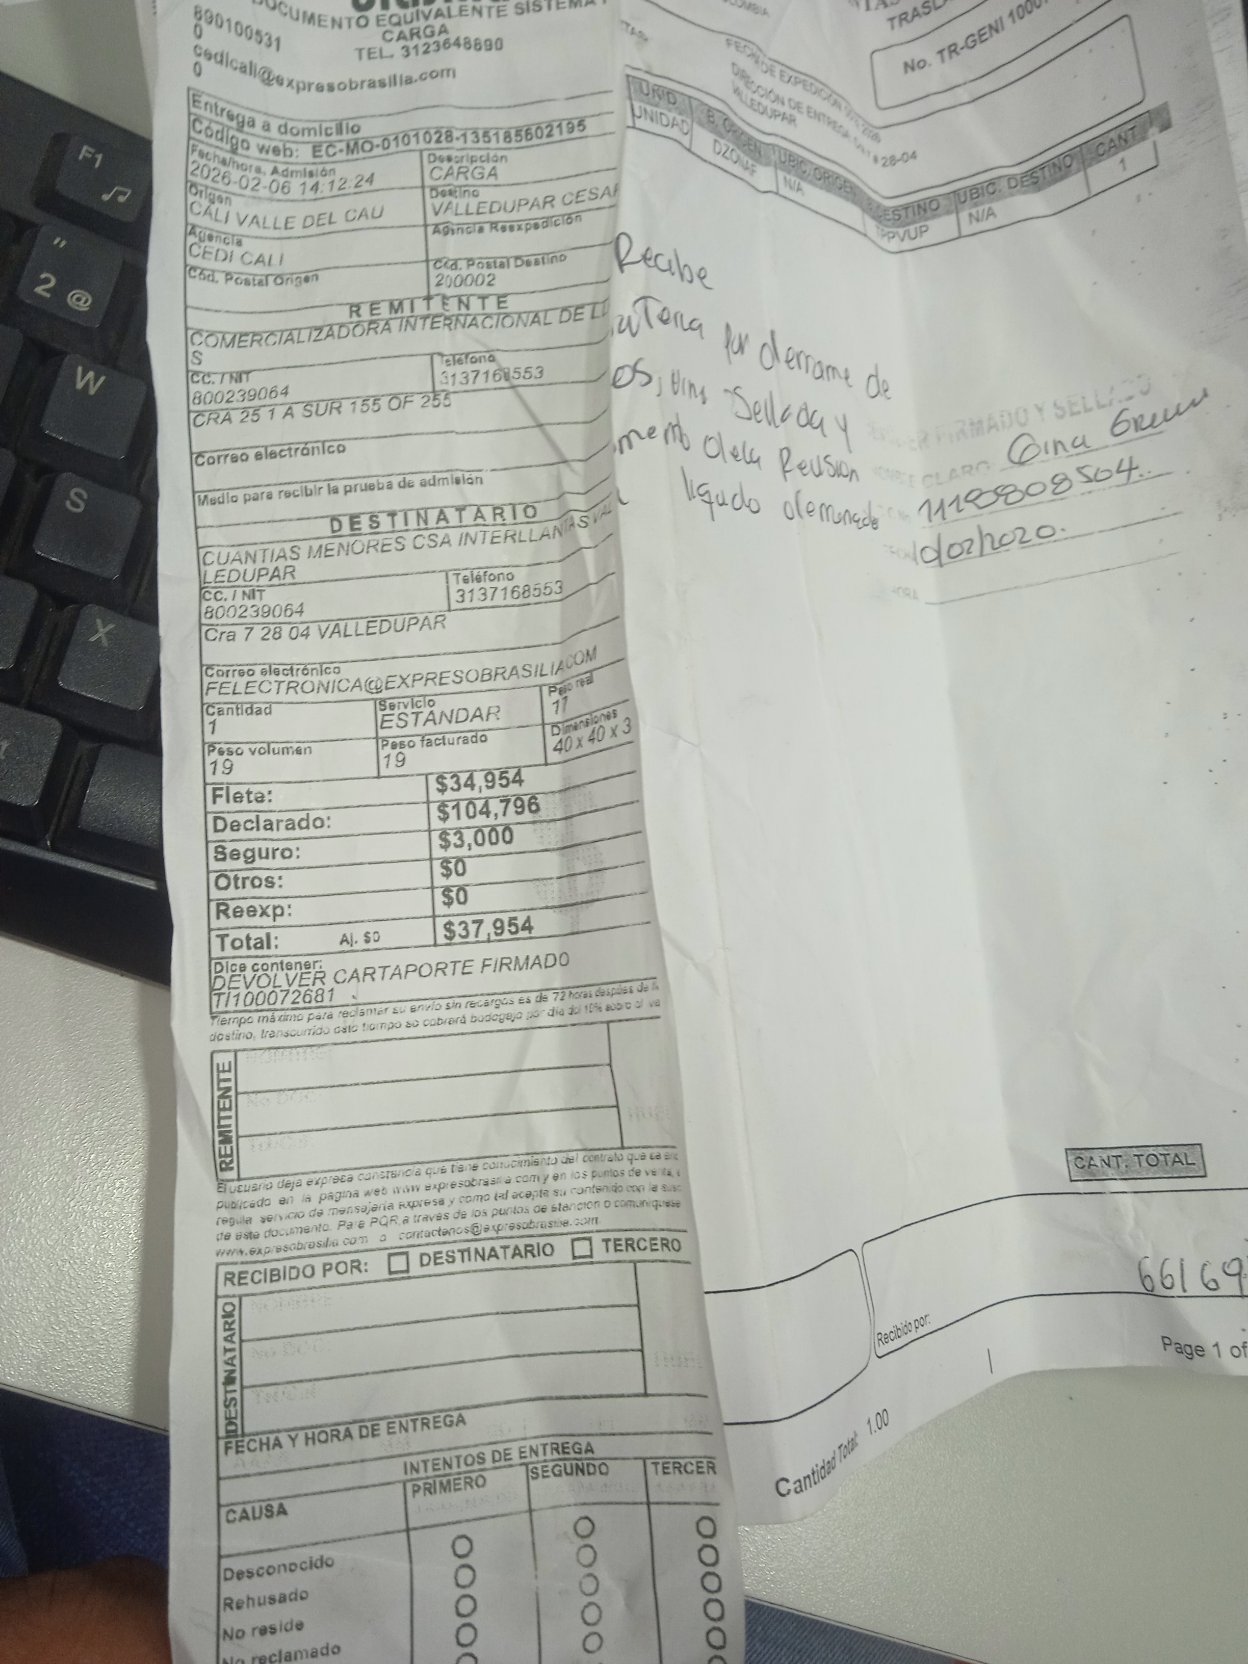 DOCUMENTO EQUIVALENTE SISTEMA
CARGA
890100531
0
TEL. 3123648890
cedicali@expresobrasilia.com
0
Entrega a domicilio
Código web: EC-MO-0101028-135185602195
Fecha/hora. Admisión
2026-02-06 14:12:24
Descripción
CARGA
Origen
CALI VALLE DEL CAU
Destino
VALLEDUPAR CESAR
Agencia
CEDI CALI
Agencia Reexpedición
Cód. Postal Origen
Cód. Postal Destino
200002
REMITENTE
COMERCIALIZADORA INTERNACIONAL DE LL
S
CC. / NIT
800239064
Teléfono
3137168553
CRA 25 1 A SUR 155 OF 255
Correo electrónico
Medio para recibir la prueba de admisión
DESTINATARIO
CUANTIAS MENORES CSA INTERLLANTAS VAL
LEDUPAR
CC. / NIT
800239064
Teléfono
3137168553
Cra 7 28 04 VALLEDUPAR
Correo electrónico
FELECTRONICA@EXPRESOBRASILIACOM
Cantidad
1
Servicio
ESTANDAR
Peso real
17
Peso volumen
19
Peso facturado
19
Dimensiones
40 x 40 x 3
Flete: $34,954
Declarado: $104,796
Seguro: $3,000
Otros: $0
Reexp: $0
Total: Aj. $0 $37,954
Dice contener:
DEVOLVER CARTAPORTE FIRMADO
TI100072681
Tiempo máximo para reclamar su envío sin recargos es de 72 horas después de
destino, transcurrido este tiempo se cobrará bodegaje por día del 10% sobre el va
REMITENTE
El usuario deja expresa constancia que tiene conocimiento del contrato que se
publicado en la página web www expresobrasilia com y en los puntos de venta,
regula servicio de mensajería expresa y como tal acepta su contenido con la
de este documento. Para PQR a través de los puntos de atención o comuníquese
www.expresobrasilia com o contactenos@expresobrasilia.com
RECIBIDO POR: DESTINATARIO TERCERO
DESTINATARIO
FECHA Y HORA DE ENTREGA
INTENTOS DE ENTREGA
CAUSA PRIMERO SEGUNDO TERCER
Desconocido
Rehusado
No reside
No reclamado
TRASL
No. TR-GENI 1000
FECHA DE EXPEDICIÓN
DIRECCIÓN DE ENTREGA 28-04
VALLEDUPAR
UNID. UBIC. ORIGEN DESTINO UBIC. DESTINO CANT
UNIDAD DZONAF N/A PPVUP N/A 1
Recibe
por derrame de
Sellada y
dela Revision
liquido
FIRMADO Y SELLADO
CLARO: Gina
1118808504
HORA
CANT. TOTAL
66169
Recibido por:
Page 1 of
Cantidad Total: 1.00